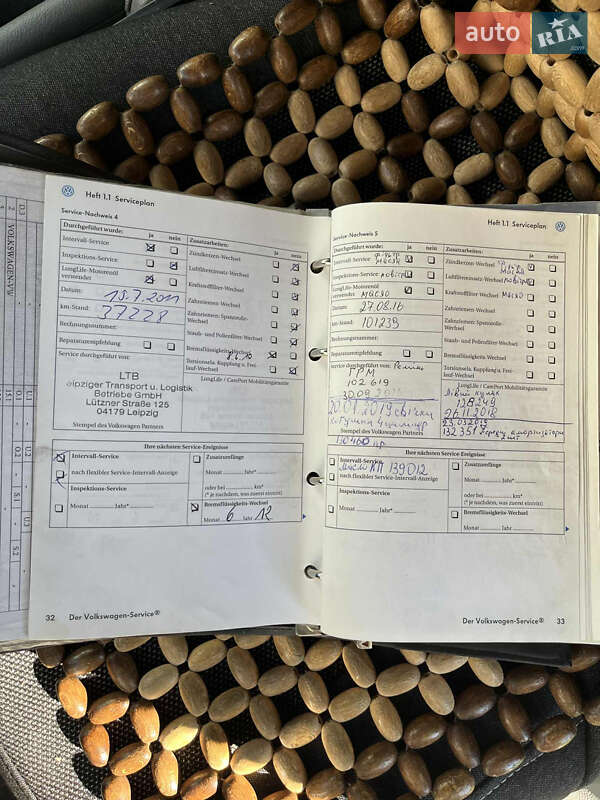 auto RIA.com
Heft 1.1 Serviceplan
Service-Nachweis 4
Durchgeführt wurde: ja nein
Zusatzarbeiten: ja nein
Intervall-Service
Zündkerzen-Wechsel
Inspektions-Service
Luftfiltereinsatz-Wechsel
LongLife-Motorenöl verwendet
Kraftstofffilter-Wechsel
Datum: 19.7.2011
Zahnriemen-Wechsel
km-Stand: 37728
Zahnriemen- Spannrolle-Wechsel
Rechnungsnummer:
Staub- und Pollenfilter-Wechsel
Reparaturempfehlung
Bremsflüssigkeits-Wechsel 8.6.10
Service durchgeführt von:
Torsionsela. Kupplung u. Freilauf-Wechsel
LongLife / CarePort Mobilitätsgarantie
LTB
Leipziger Transport u. Logistik
Betriebe GmbH
Lützner Straße 125
04179 Leipzig
Stempel des Volkswagen Partners
Ihre nächsten Service-Ereignisse
Intervall-Service
nach flexibler Service-Intervall-Anzeige
Zusatzumfänge
Monat Jahr*
Inspektions-Service
oder bei km*
(* je nachdem, was zuerst eintritt)
Monat Jahr*
Bremsflüssigkeits-Wechsel
Monat 6 Jahr 12
32 Der Volkswagen-Service®
Heft 1.1 Serviceplan
Service-Nachweis 5
Durchgeführt wurde: ja nein
Zusatzarbeiten: ja nein
Intervall-Service
Zündkerzen-Wechsel
Inspektions-Service
Luftfiltereinsatz-Wechsel
LongLife-Motorenöl verwendet масло
Kraftstofffilter-Wechsel масло
Datum: 27.08.16
Zahnriemen-Wechsel
km-Stand: 101239
Zahnriemen- Spannrolle-Wechsel
Rechnungsnummer:
Staub- und Pollenfilter-Wechsel
Reparaturempfehlung
Bremsflüssigkeits-Wechsel
Service durchgeführt von:
Torsionsela. Kupplung u. Freilauf-Wechsel
102 619
LongLife / CarePort Mobilitätsgarantie
26.11.2018
23.03.2019
132 351
Stempel des Volkswagen Partners
Ihre nächsten Service-Ereignisse
Intervall-Service
масло КП 139012
nach flexibler Service-Intervall-Anzeige
Zusatzumfänge
Monat Jahr*
Inspektions-Service
oder bei km*
(* je nachdem, was zuerst eintritt)
Monat Jahr*
Bremsflüssigkeits-Wechsel
Monat Jahr
Der Volkswagen-Service® 33